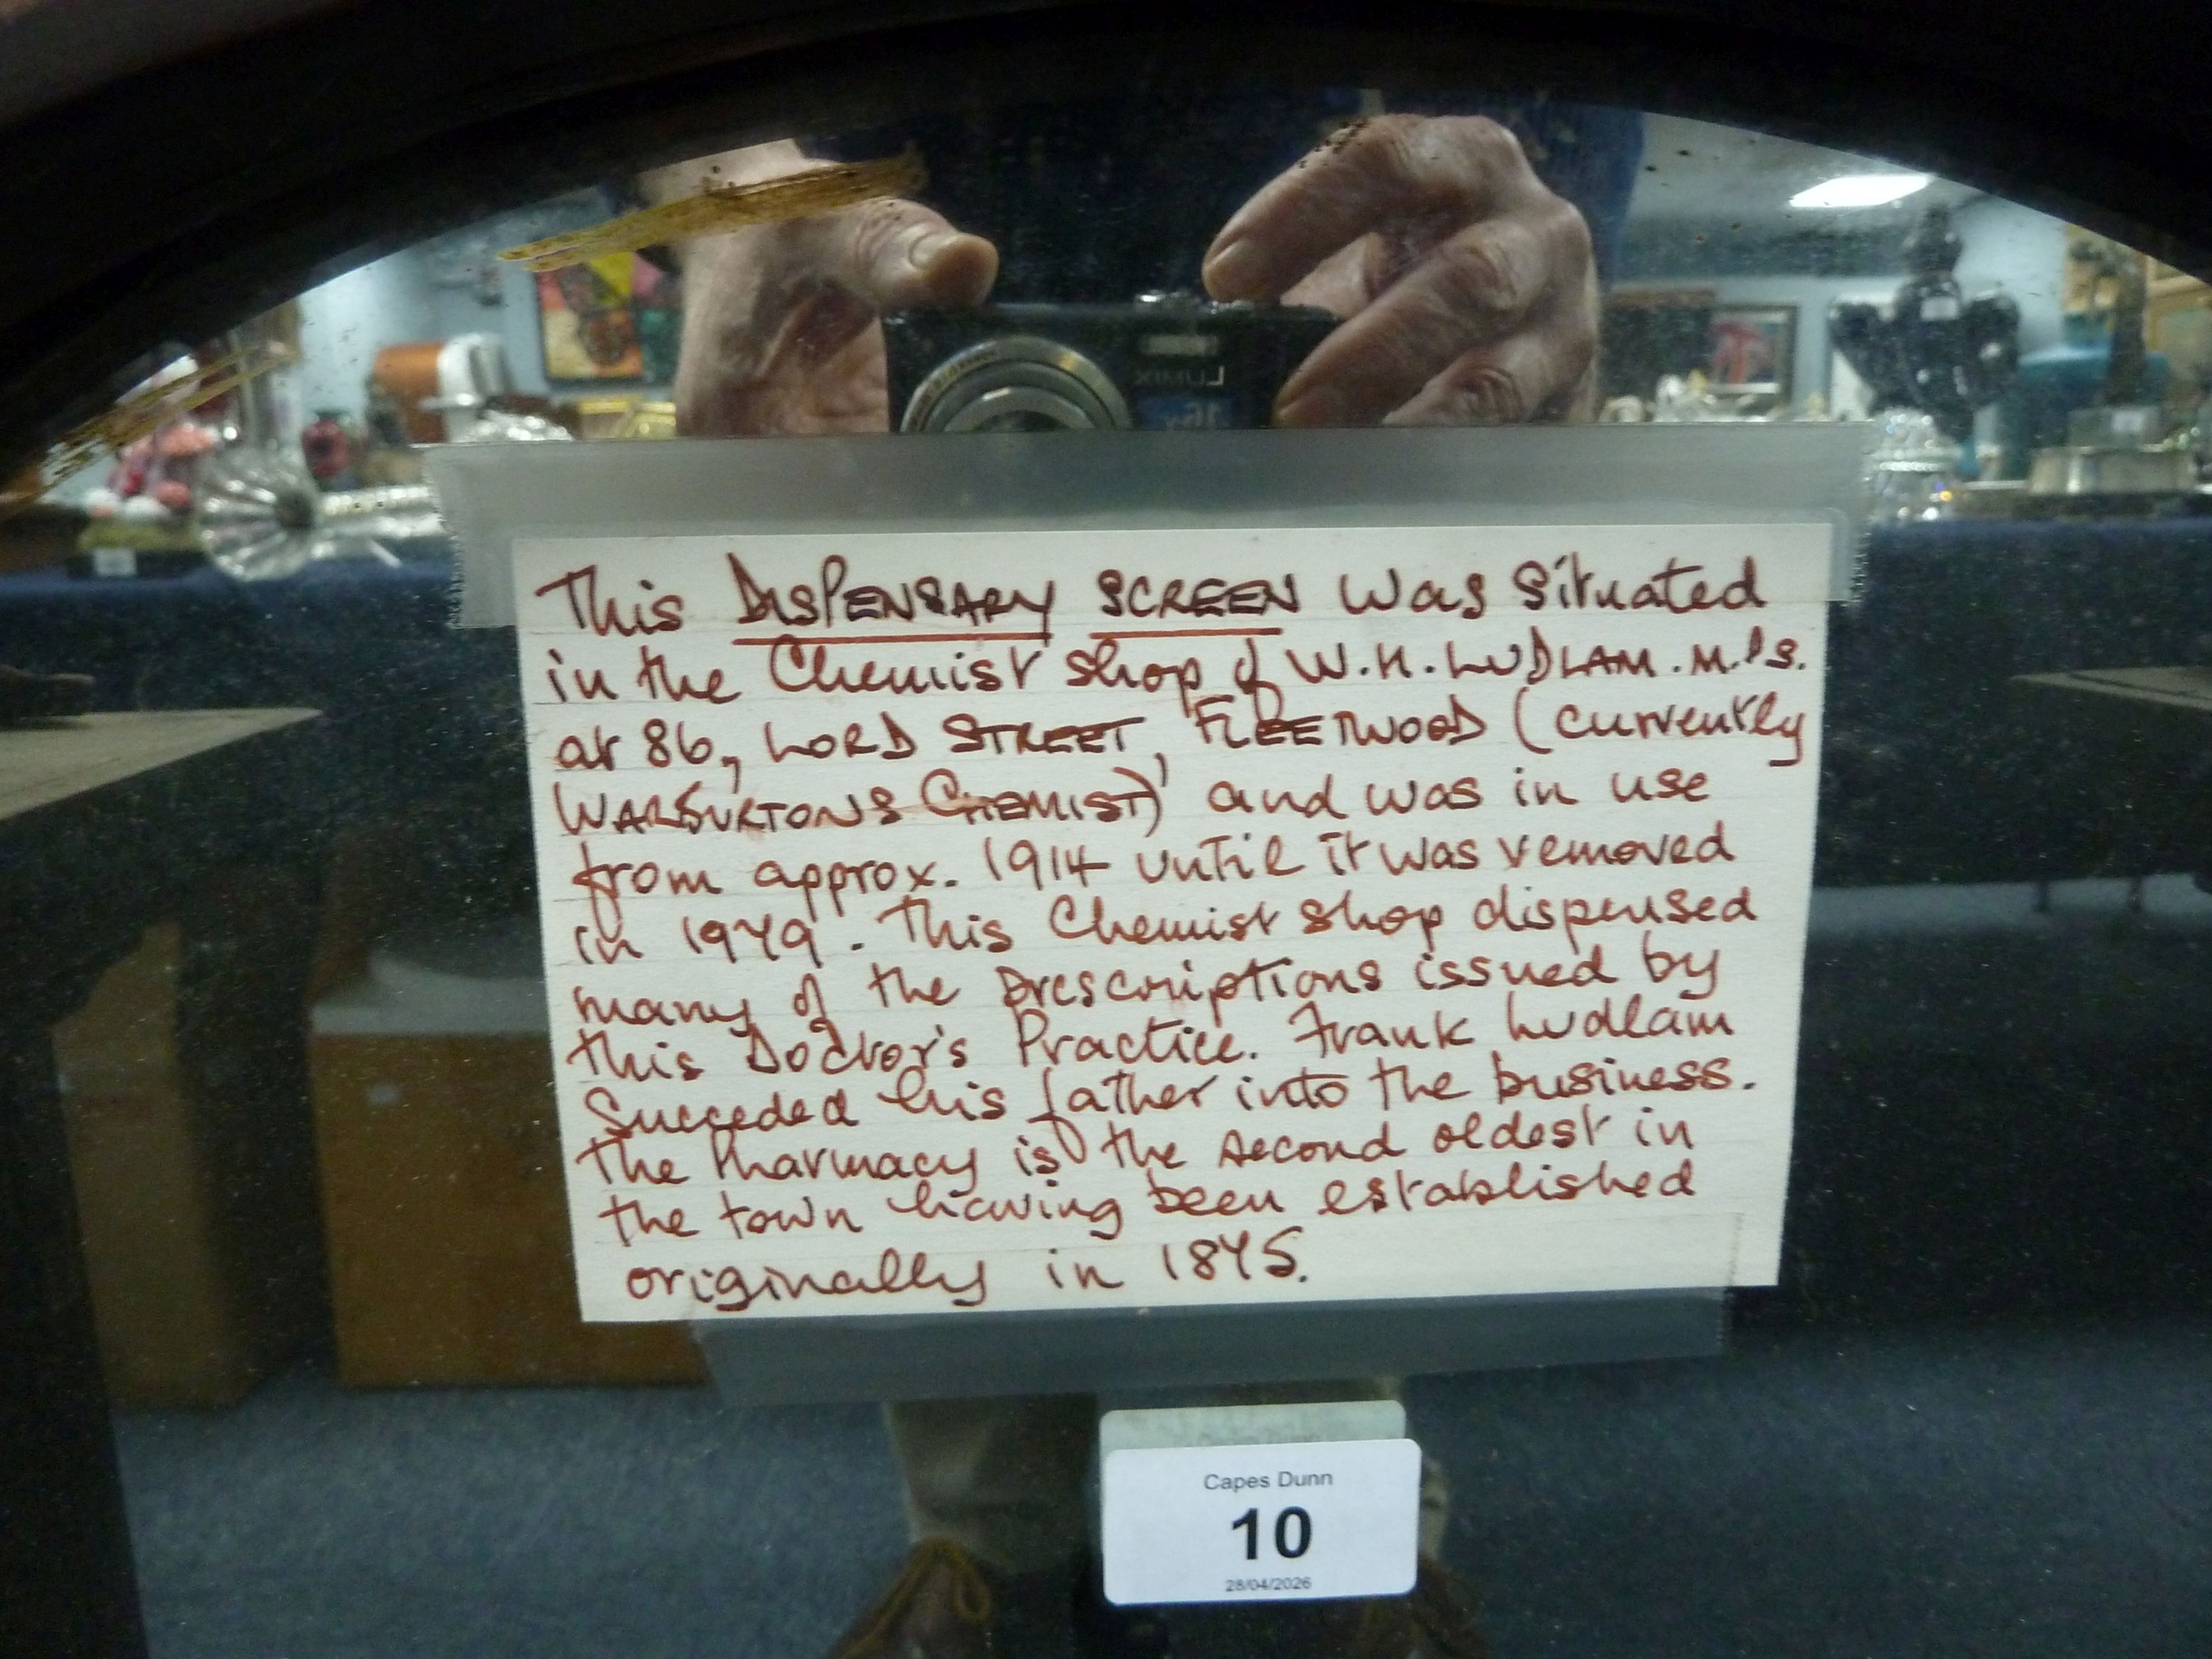 LUMIX
16x
This DISPENSARY SCREEN was situated
in the Chemist shop of W.H. LUDLAM. M.P.S.
at 86, LORD STREET, FLEETWOOD (currently
WARBURTONS CHEMIST) and was in use
from approx. 1914 until it was removed
in 1979. This Chemist shop dispensed
many of the prescriptions issued by
this Doctor's Practice. Frank Ludlam
Succeded his father into the business.
The Pharmacy is the second oldest in
the town having been established
originally in 1875.
Capes Dunn
10
28/04/2026